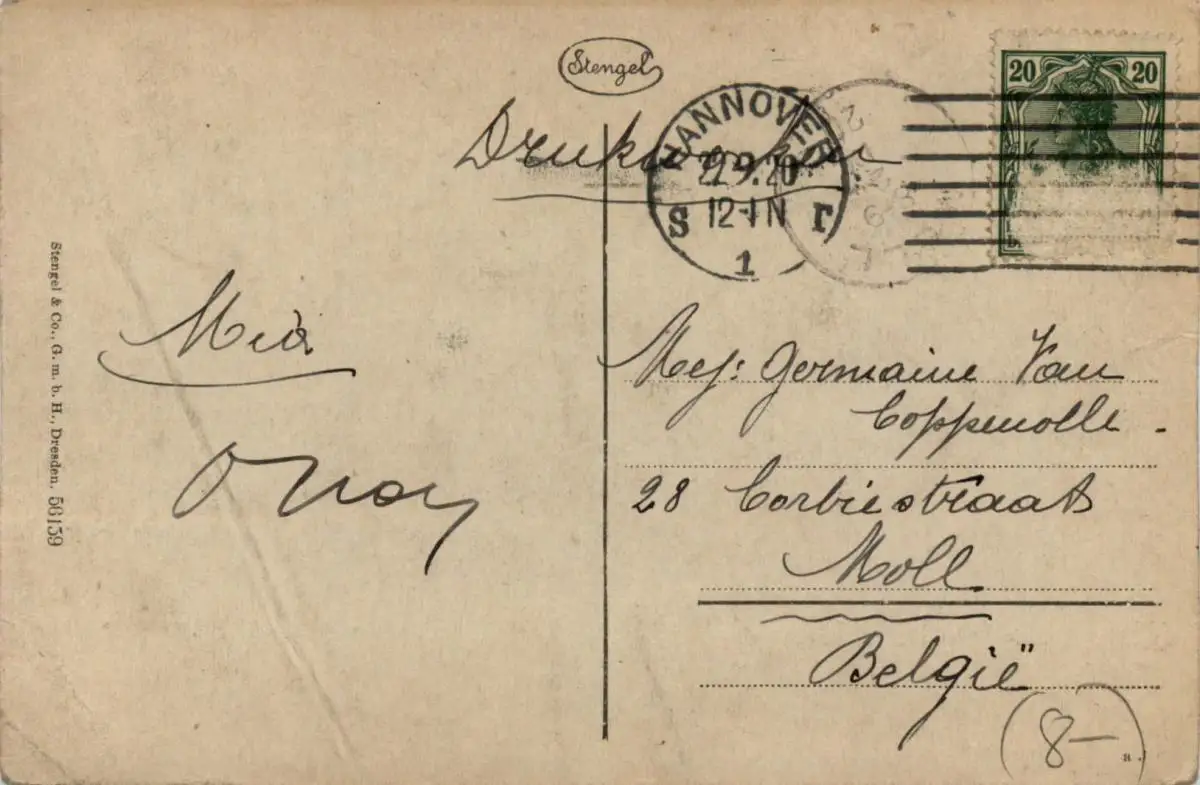 Stengel
20 20
Drukwerken
HANNOVER
22.9.20
12-1 N
S 1
1
Mia
Mej: Germaine Van
Coppenolle.
28 Corbiestraat
Moll
België
8-
Stengel & Co., G. m. b. H., Dresden. 56139